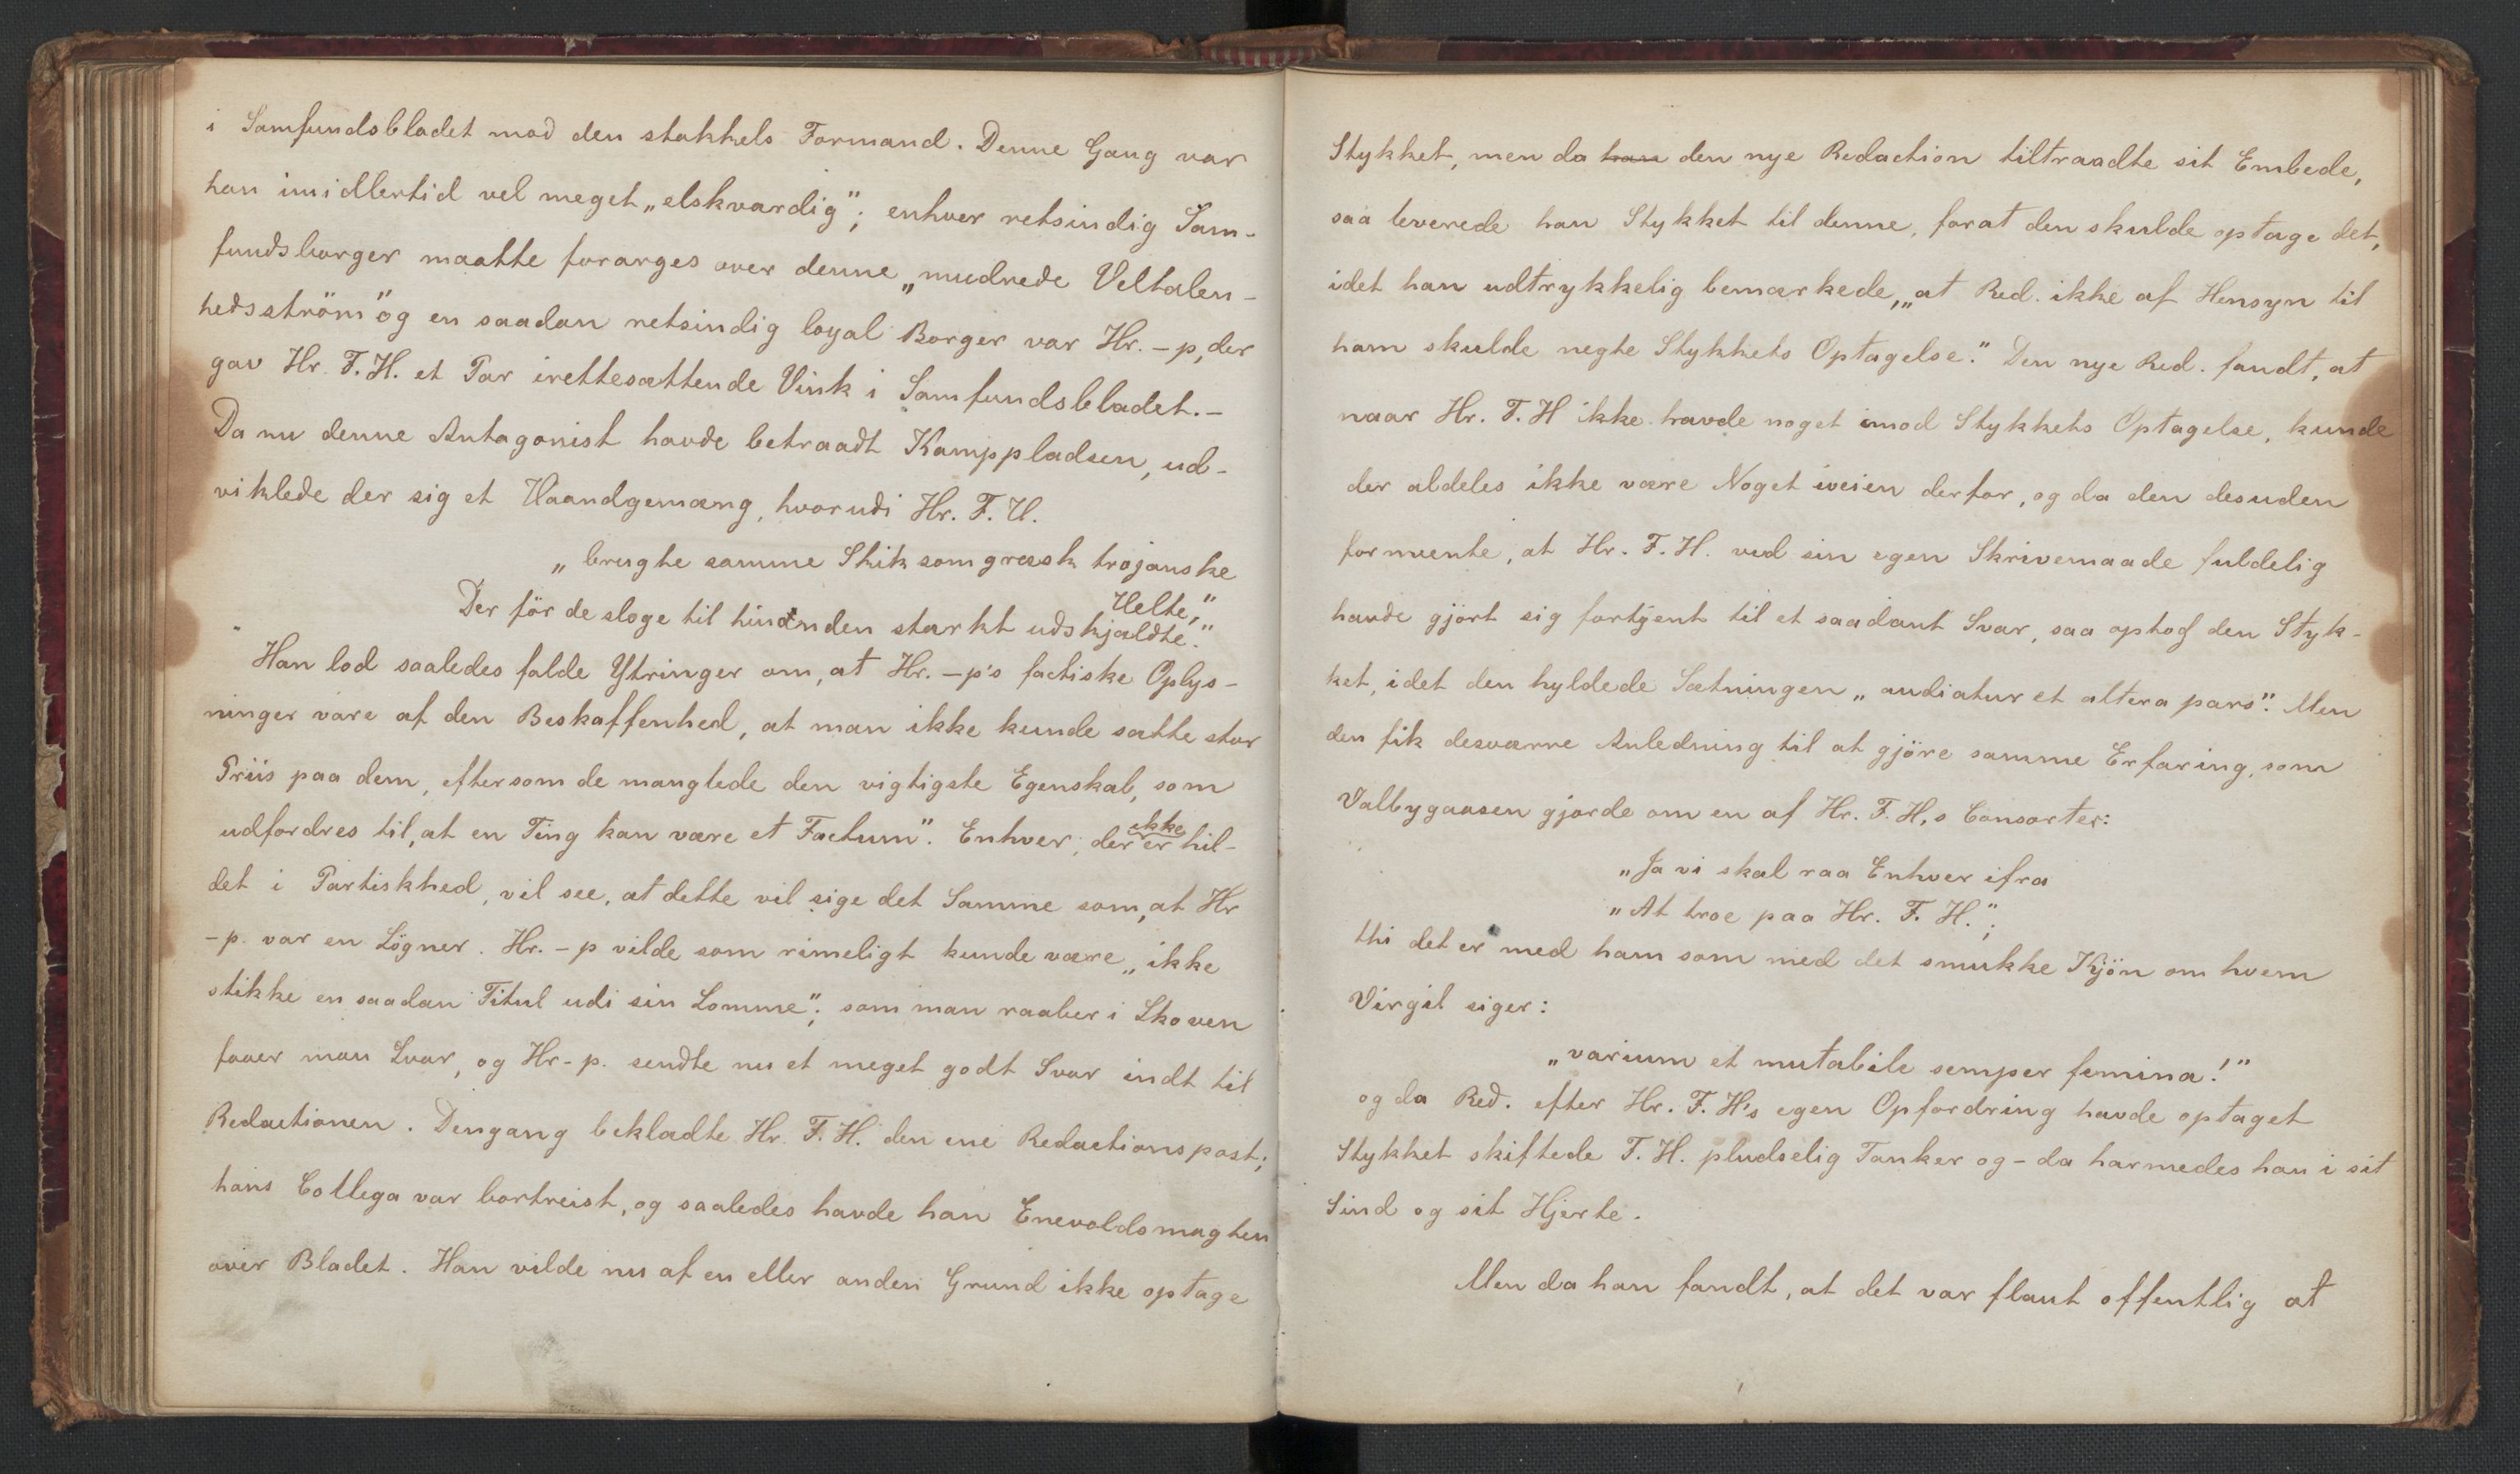 i Samfundsbladet mod den stakkels Formand. Denne Gang var
han imidlertid vel meget „elskværdig"; enhver retsindig Sam-
fundsborger maatte forarges over denne „mudrede Veltalen-
hedsström" og en saadan retsindig loyal Borger var Hr. -p, der
gav Hr. F. H. et Par irettesættende Vink i Samfundsbladet.-
Da nu denne Antagonist havde betraadt Kamppladsen, ud-
viklede der sig et Haandgemæng, hvorudi Hr. F. H.
„brugte samme Skik som græsk trojanske
Helte,"
Der för de sloge til hinanden stærkt udskjældte."
Han lod saaledes falde Ytringer om, at Hr. -p's factiske Oplys-
ninger vare af den Beskaffenhed, at man ikke kunde sætte stor
Priis paa dem, eftersom de manglede den vigtigste Egenskab, som
udfordres til, at en Ting kan være et Factum". Enhver, der ikke er hil-
det i Partiskhed, vil see, at dette vil sige det Samme som, at Hr
-p. var en Lögner. Hr. -p vilde som rimeligt kunde være „ikke
stikke en saadan Titul udi sin Lomme"; som man raaber i Skoven
faaer man Svar, og Hr -p. sendte nu et meget godt Svar indt til
Redactionen. Dengang beklædte Hr. F. H. den ene Redactionspost;
hans Collega var bortreist, og saaledes havde han Enevoldsmagten
over Bladet. Han vilde nu af en eller anden Grund ikke optage
Stykket, men da han den nye Redaction tiltraadte sit Embede,
saa leverede han Stykket til denne, forat den skulde optage det,
idet han udtrykkelig bemærkede, „at Red. ikke af Hensyn til
ham skulde negte Stykkets Optagelse." Den nye Red. fandt, at
naar Hr. F. H ikke havde noget imod Stykkets Optagelse, kunde
der aldeles ikke være Noget iveien derfor, og da den desuden
formente, at Hr. F. H. ved sin egen Skrivemaade fuldelig
havde gjört sig fortjent til et saadant Svar, saa optog den Styk-
ket, idet den hyldede Sætningen „audiatur et altera pars". Men
den fik desværre Anledning til at gjöre samme Erfaring, som
Valbygaasen gjorde om en af Hr. F. H,s Consorter:
„Ja vi skal raa Enhver ifra
„At troe paa Hr. F. H.";
thi det er med ham som med det smukke Kjön om hvem
Virgil siger:
„varium et mutabile semper femina!"
og da Red. efter Hr. F. H's egen Opfordring havde optaget
Stykket skiftede F. H. pludselig Tanker og - da harmedes han i sit
Sind og sit Hjerte.
Men da han fandt, at det var flaut offentlig at